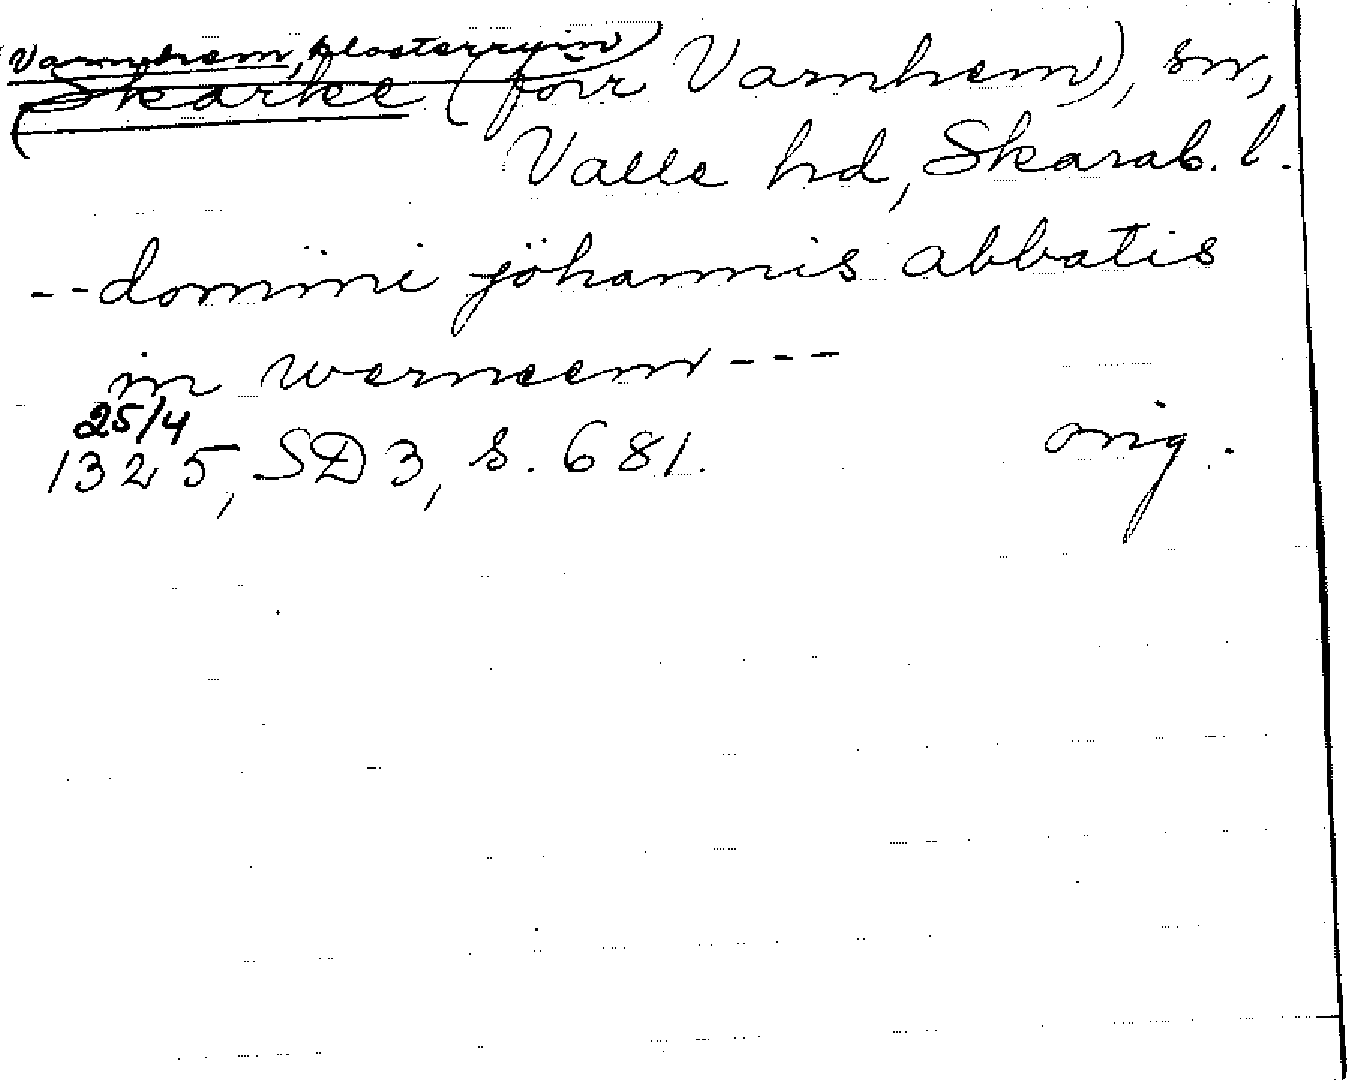 Varnhem, klosterruin)
(Skarke (förr Varnhem), sn,
Valle hd, Skarab. l.
--domini johannis abbatis
in werneem---
25/4
1325, SD3, s. 681. orig.